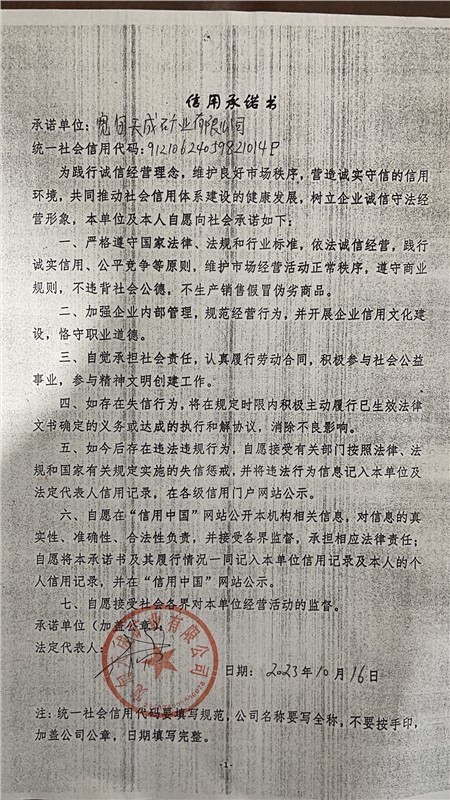 信用承诺书
承诺单位：宽甸天成矿业有限公司
统一社会信用代码：
为践行诚信经营理念，维护良好市场秩序，营造诚实守信的信用
环境，共同推动社会信用体系建设的健康发展，树立企业诚信守法经
营形象，本单位及本人自愿向社会承诺如下：
一、严格遵守国家法律、法规和行业标准，依法诚信经营，践行
诚实信用、公平竞争等原则，维护市场经营活动正常秩序，遵守商业
规则，不违背社会公德，不生产销售假冒伪劣商品。
二、加强企业内部管理，规范经营行为，并开展企业信用文化建
设，恪守职业道德。
三、自觉承担社会责任，认真履行劳动合同，积极参与社会公益
事业，参与精神文明创建工作。
四、如存在失信行为，将在规定时限内积极主动履行已生效法律
文书确定的义务或达成的执行和解协议，消除不良影响。
五、如今后存在违法违规行为，自愿接受有关部门按照法律、法
规和国家有关规定实施的失信惩戒，并将违法行为信息记入本单位及
法定代表人信用记录，在各级信用门户网站公示。
六、自愿在“信用中国”网站公开本机构相关信息，对信息的真
实性、准确性、合法性负责，并接受各界监督，承担相应法律责任；
自愿将本承诺书及其履行情况一同记入本单位信用记录及本人的个
人信用记录，并在“信用中国”网站公示。
七、自愿接受社会各界对本单位经营活动的监督。
承诺单位（加盖公章）：
法定代表人：
日期：2023年10月16日
注：统一社会信用代码要填写规范，公司名称要写全称，不要按手印，
加盖公司公章，日期填写完整。
-1-